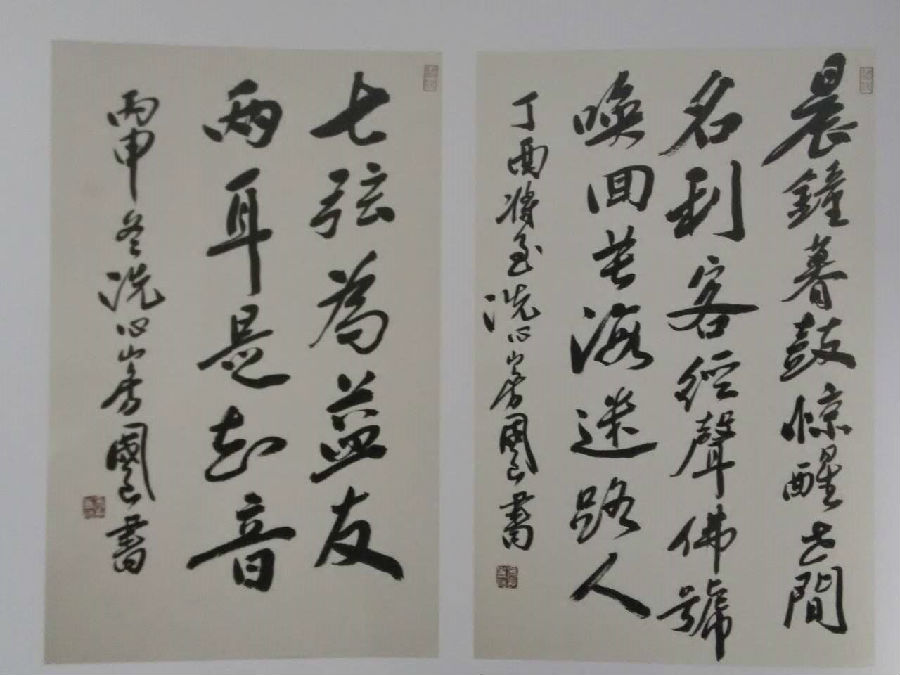 晨鐘暮鼓惊醒世間
名利客經聲佛號
喚回苦海迷路人
丁酉將至洗心山房國忠書
七弦為益友
兩耳是知音
丙申冬洗心山房國忠書